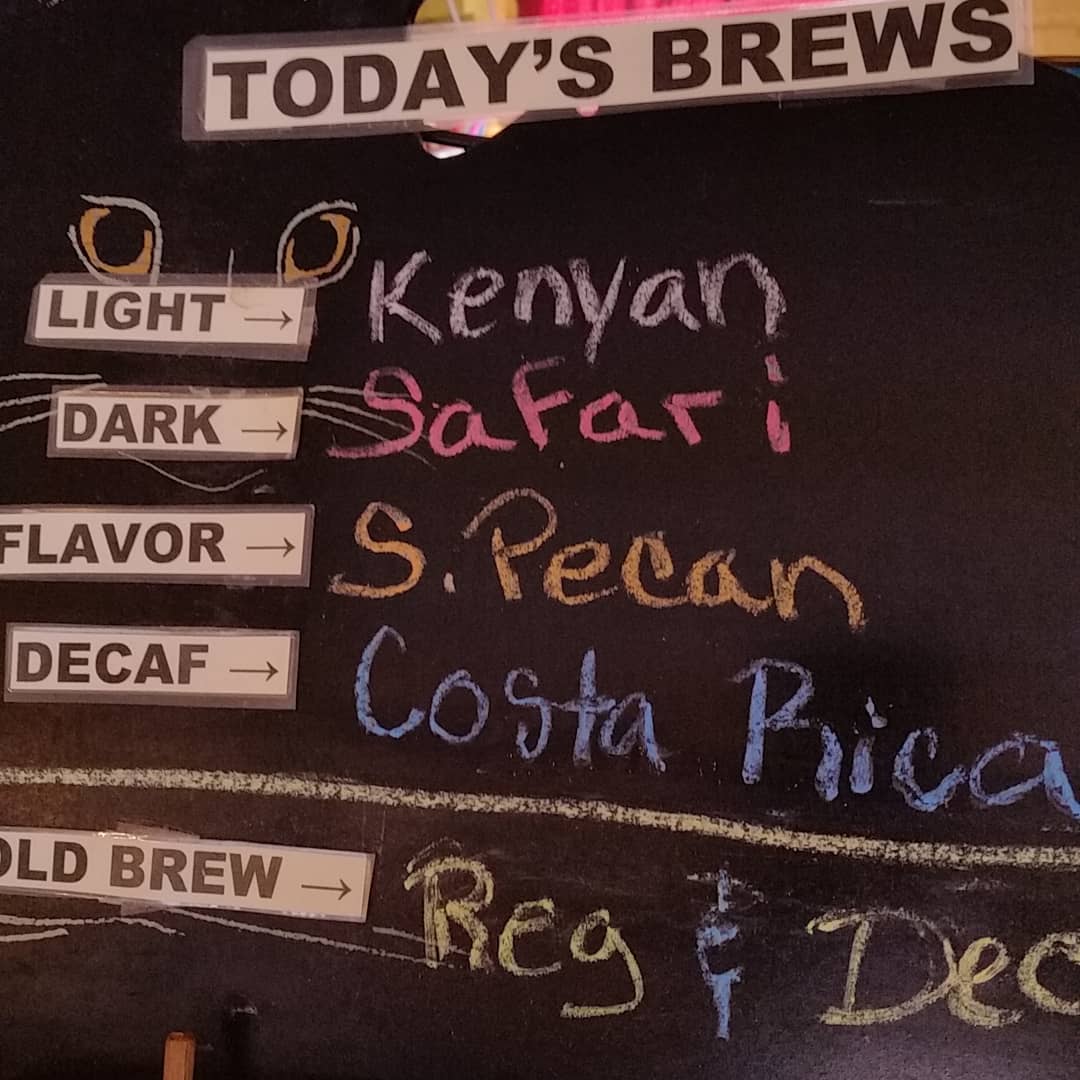 TODAY'S BREWS
LIGHT → Kenyan
DARK → Safari
FLAVOR → S. Pecan
DECAF → Costa Rica
OLD BREW → Reg & Dec